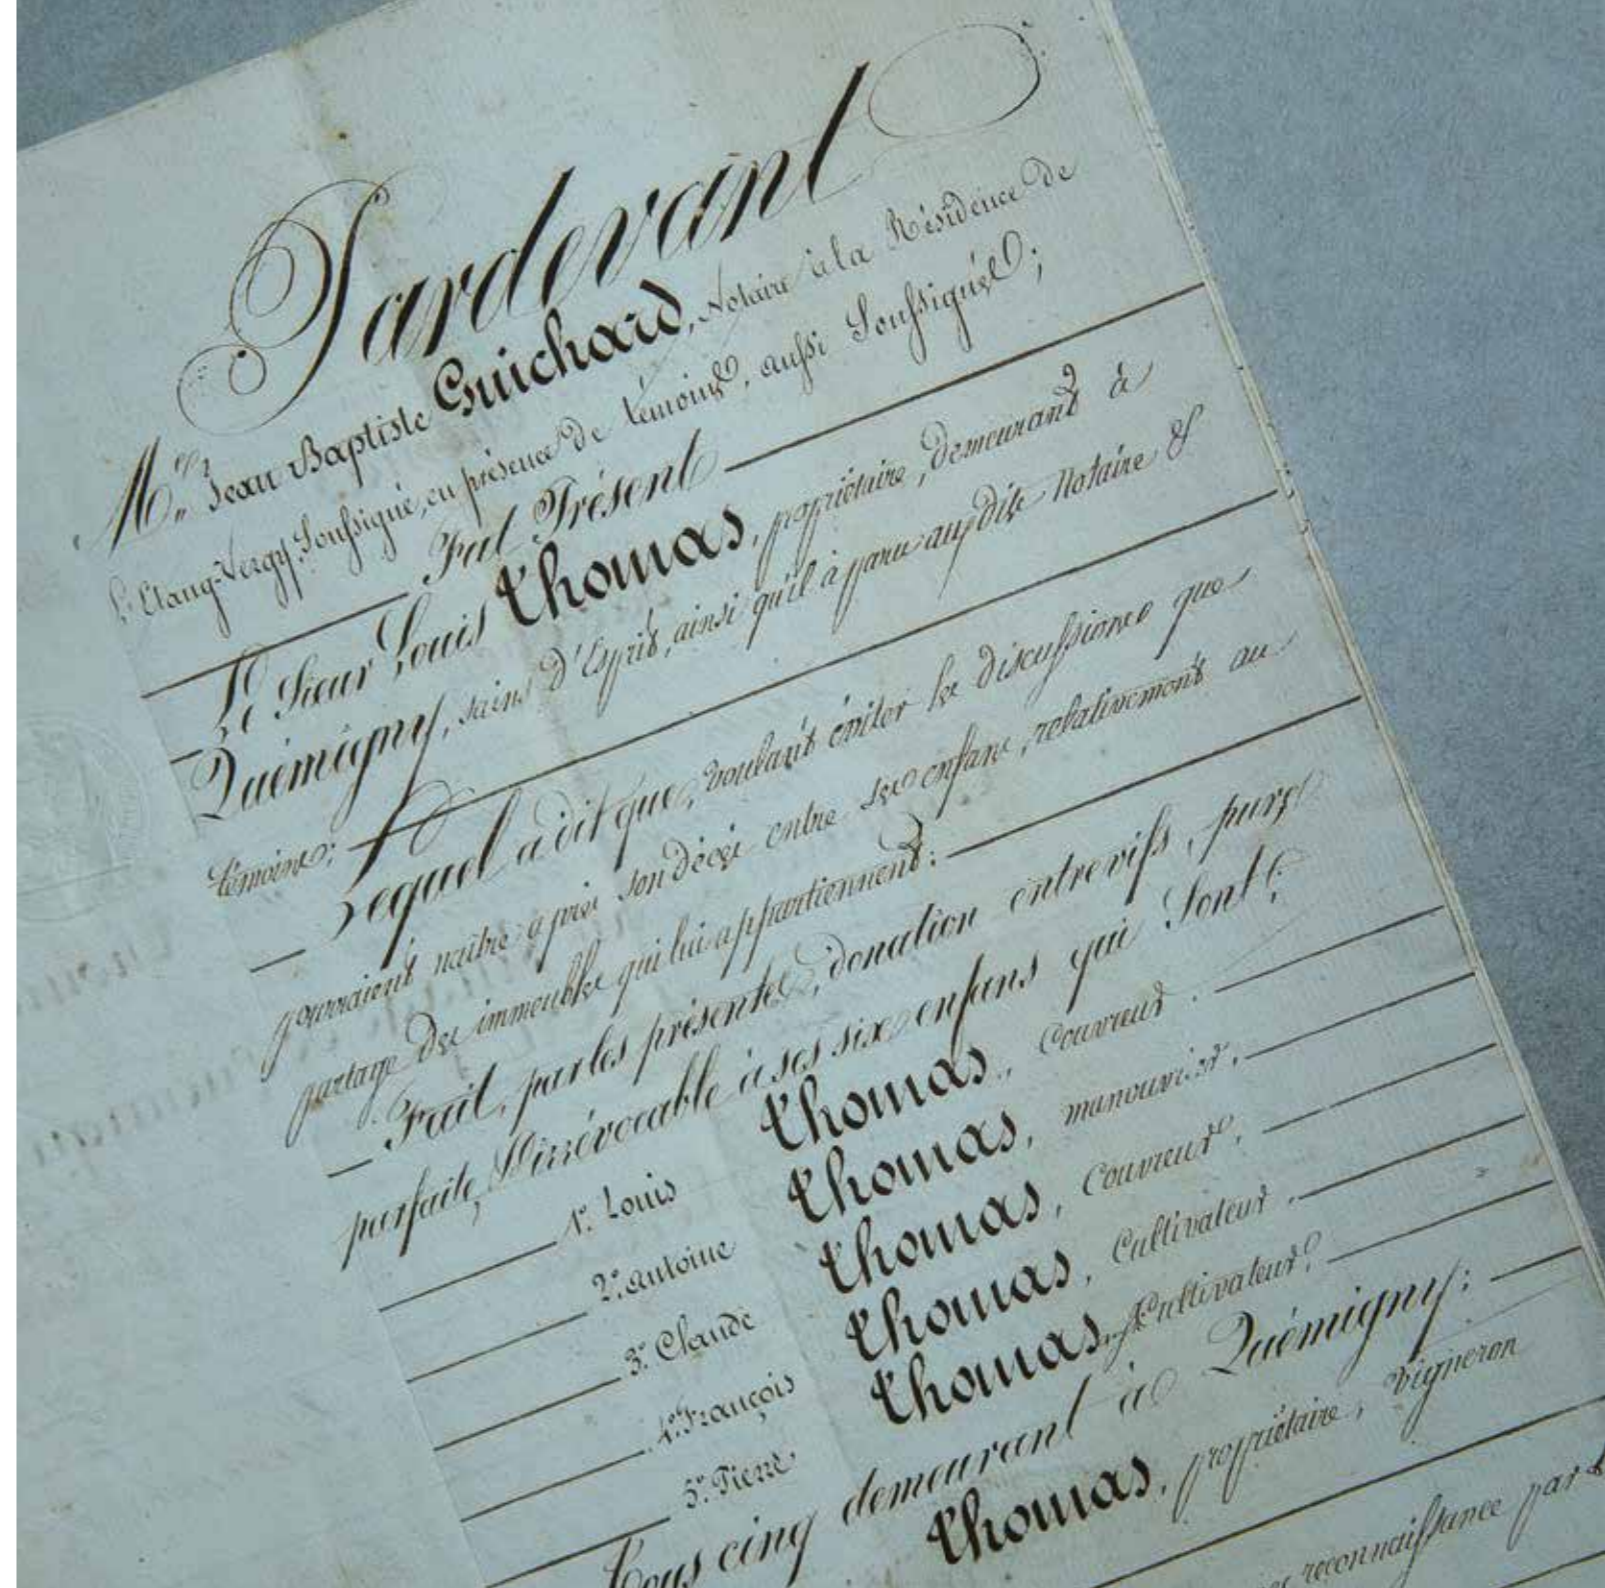 Pardevant
M.e Jean Baptiste Guichard, Notaire à la Résidence de
L'Etang-Vergy, Soussigné, en présence de témoins, aussi Soussignés;
Fut Présent
Le Sieur Louis Thomas, propriétaire, demeurant à
Quémigny, sains d'Esprit, ainsi qu'il à paru auxdits Notaire &
témoins;
Lequel a dit que, voulant éviter les discussions que
pourraient naître après son décès entre ses enfans, relativement au
partage des immeubles qui lui appartiennent;
Fait, par les présentes, donation entrevifs, pure
parfaite, & irrévocable à ses six enfans qui Sont:
1.° Louis Thomas, Couvreur.
2.° Antoine Thomas, manouvrier,
3.° Claude Thomas, Couvreur,
4.° François Thomas, Cultivateur.
5.° Pierre Thomas, Cultivateur,
Tous cinq demeurant à Quémigny;
Thomas, propriétaire, vigneron
reconnaissance par